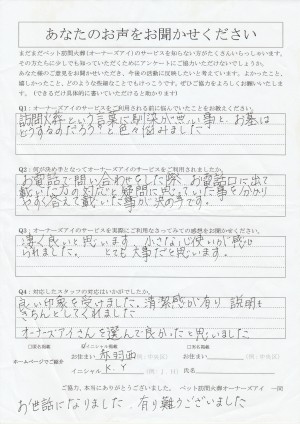 あなたのお声をお聞かせください
まだまだペット訪問火葬(オーナーズアイ)のサービスを知らない方がたくさんいらっしゃいます。
その方たちに少しでも知っていただくためにアンケートにご協力いただけないでしょうか。
あなた様のご意見をお聞かせいただき、今後の活動に反映したいと考えています。よかったこと、
嬉しかったこと、どのような些細なことでもけっこうです。ぜひご協力をよろしくお願いいたしま
す。(できるだけ具体的に書いていただけると助かります)
Q1:オーナーズアイのサービスをご利用される前に悩んでいたことをお教えください。
訪問火葬という言葉に馴染が無い事と、お墓は
どうするのだろう?と色々悩みました
Q2:何が決め手となってオーナーズアイのサービスをご利用されましたか。
お電話で問い合わせをした際、お電話口に出て
戴いた方の対応と疑問に思っていた事を分かり
やすく答えて戴いた事が決め手です。
Q3:オーナーズアイのサービスを実際にご利用なさってみての感想をお聞かせください。
凄く良いと思います、小さな心使いが感じ
られました。とても大事だと思います。
Q4:対応したスタッフの対応はいかがでしたか。
良い印象を受けました。清潔感が有り 説明も
きちんとしてくれました
オーナーズアイさんを選んで良かったと思いました
□実名掲載 ☑イニシャル掲載 □匿名掲載
ホームページでご紹介
お住まい 赤羽西 (例:中央区) お住まい (例:中央区)
イニシャル K.Y (例:J.H) 氏名
ご協力、本当にありがとうございました。 ペット訪問火葬オーナーズアイ 一同
お世話になりました、有り難うございました